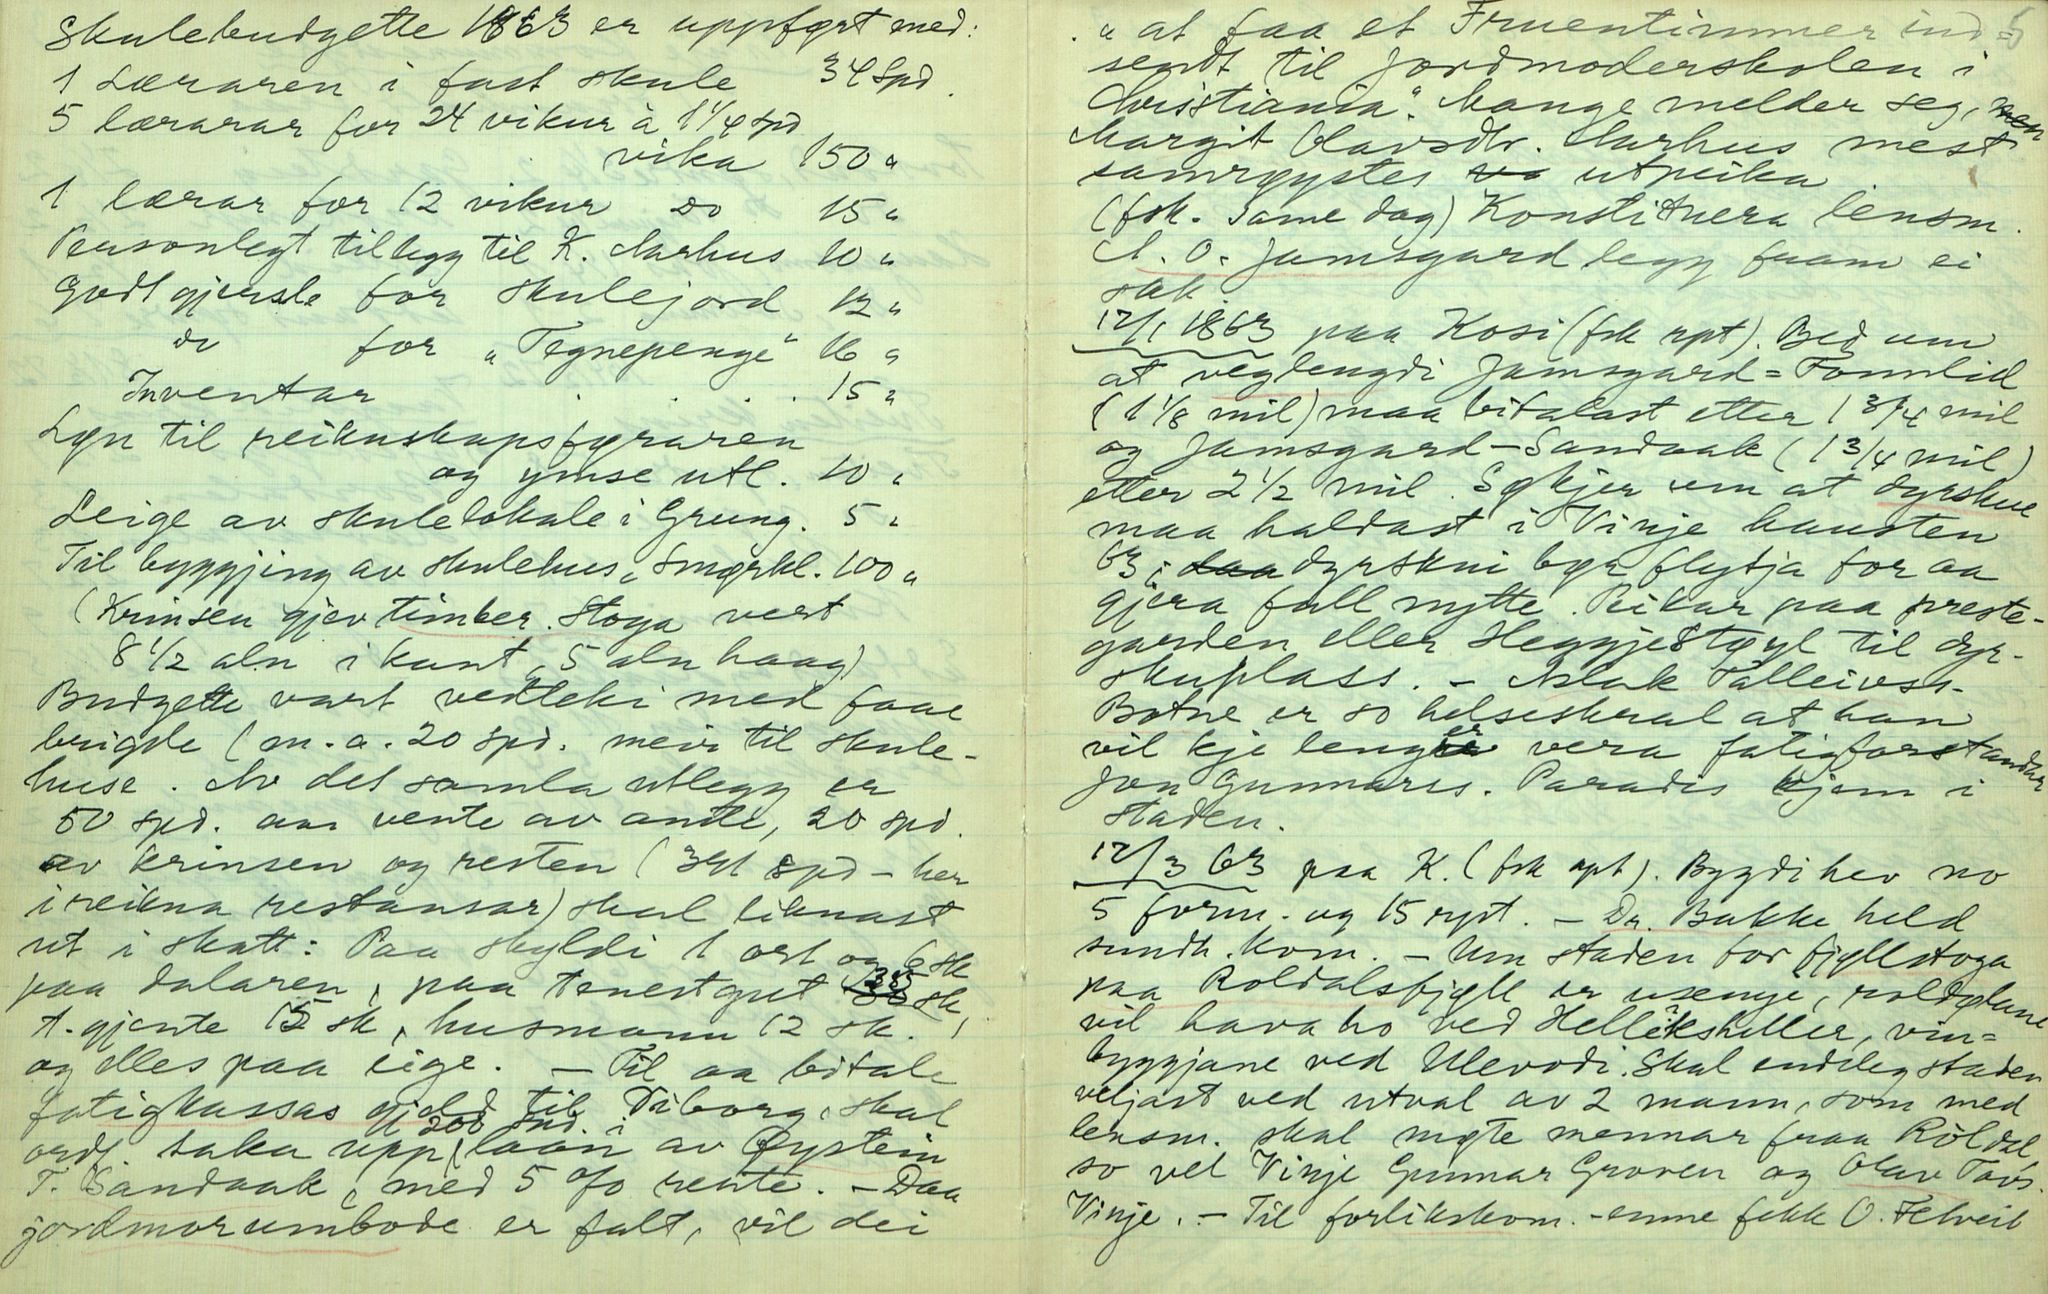 Skulebudgette 1863 er uppført med:
1 Læraren i fast skule 34 Spd.
5 lærarar for 24 vikur à 1 1/4 spd
vika 150 "
1 lærar for 12 vikur do 15 "
Personlegt tillegg til K. Aarhus 10 "
Godtgjersle for skulejord 12 "
do for "Tegnepenge" 16 "
Inventar . . . . 15 "
Løn til reikneskapsføraren
og ymse utl. 10 "
Leige av skulelokale i Grung. 5 "
Til byggjing av skulehus, Smørkl. 100 "
(Krinsen gjev timber. Stoga vert
8 1/2 aln i kant, 5 aln haag)
Budgette vart vedteki med faae
brigde (m. a. 20 spd. meir til skule-
huse. Av det samla utlegg er
50 spd. aa vente av andle, 20 spd.
av krinsen og resten (391 spd - her
i reikna restansar) skal liknast
ut i skatt: Paa skyldi 1 ort og 6 sk
paa dalaren, paa tenestgut 33 sk,
t. gjente 15 sk, husmann 12 sk.,
og elles paa eige. - Til aa bitale
fatigkassas gjeld til Viborg, skal
ordf. taka upp 200 spd. i laan av Øystein
T. Sandaak, med 5 % rente. - Daa
jordmorumbode er falt, vil dei
" at faa et Fruentimmer ind= 5
sendt til Jordmoderskolen i
Christiania". Mange melder seg, men
Margit Olavsdtr. Aarhus mest
samrøystes utpeika.
(fsk. same dag) Konstituera lensm.
A. O. Jamsgard legg fram ei
sak.
12/1 1863 paa Kosi (fsk rpt). Bed um
at veglengdi Jamsgard = Tommlid
(1 1/8 mil) maa bitalast etter 1 3/4 mil
og Jamsgard - Sandaak (1 3/4 mil)
etter 2 1/2 mil. Søkjer um at dyrskue
maa haldast i Vinje hausten
63; daa dyrskui bør flytja for aa
gjera full nytte. Peikar paa preste-
garden eller Heggjestøyl til dyr-
skuplass. - Aslak Talleivss.
Botne er so helseskral at han
vil kje lenger vera fatigforstandar
Jon Gunnars. Paradis kjem i
staden.
12/3 63 paa K. (fsk rpt). Bygdi hev no
5 form. og 15 rpt. - Dr. Bakke held
sundh. kom. - Um staden for fjellstoga
paa Roldalsfjell er usemje, røldølane
vil hava ho ved Helliksheller, vin=
byggjane ved Ulevodi. Skal endeleg staden
veljast ved utval av 2 mann, som med
lensm. skal møte mennar fraa Røldal,
so vel Vinje Gunnar Groven og Olav Tovs.
Vinje. - Til forlikskom. - emne fekk O. Felveit